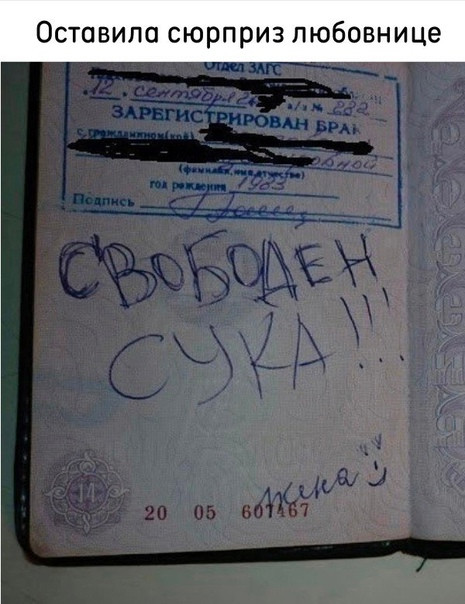 Оставила сюрприз любовнице
Отдел ЗАГС
12. сентября
а/з № 222
ЗАРЕГИСТРИРОВАН БРАК
с гражданином(кой)
(фамилия, имя, отчество)
год рождения 1983
Подпись
СВОБОДЕН
СУКА!!!
жена
14
20 05 601467